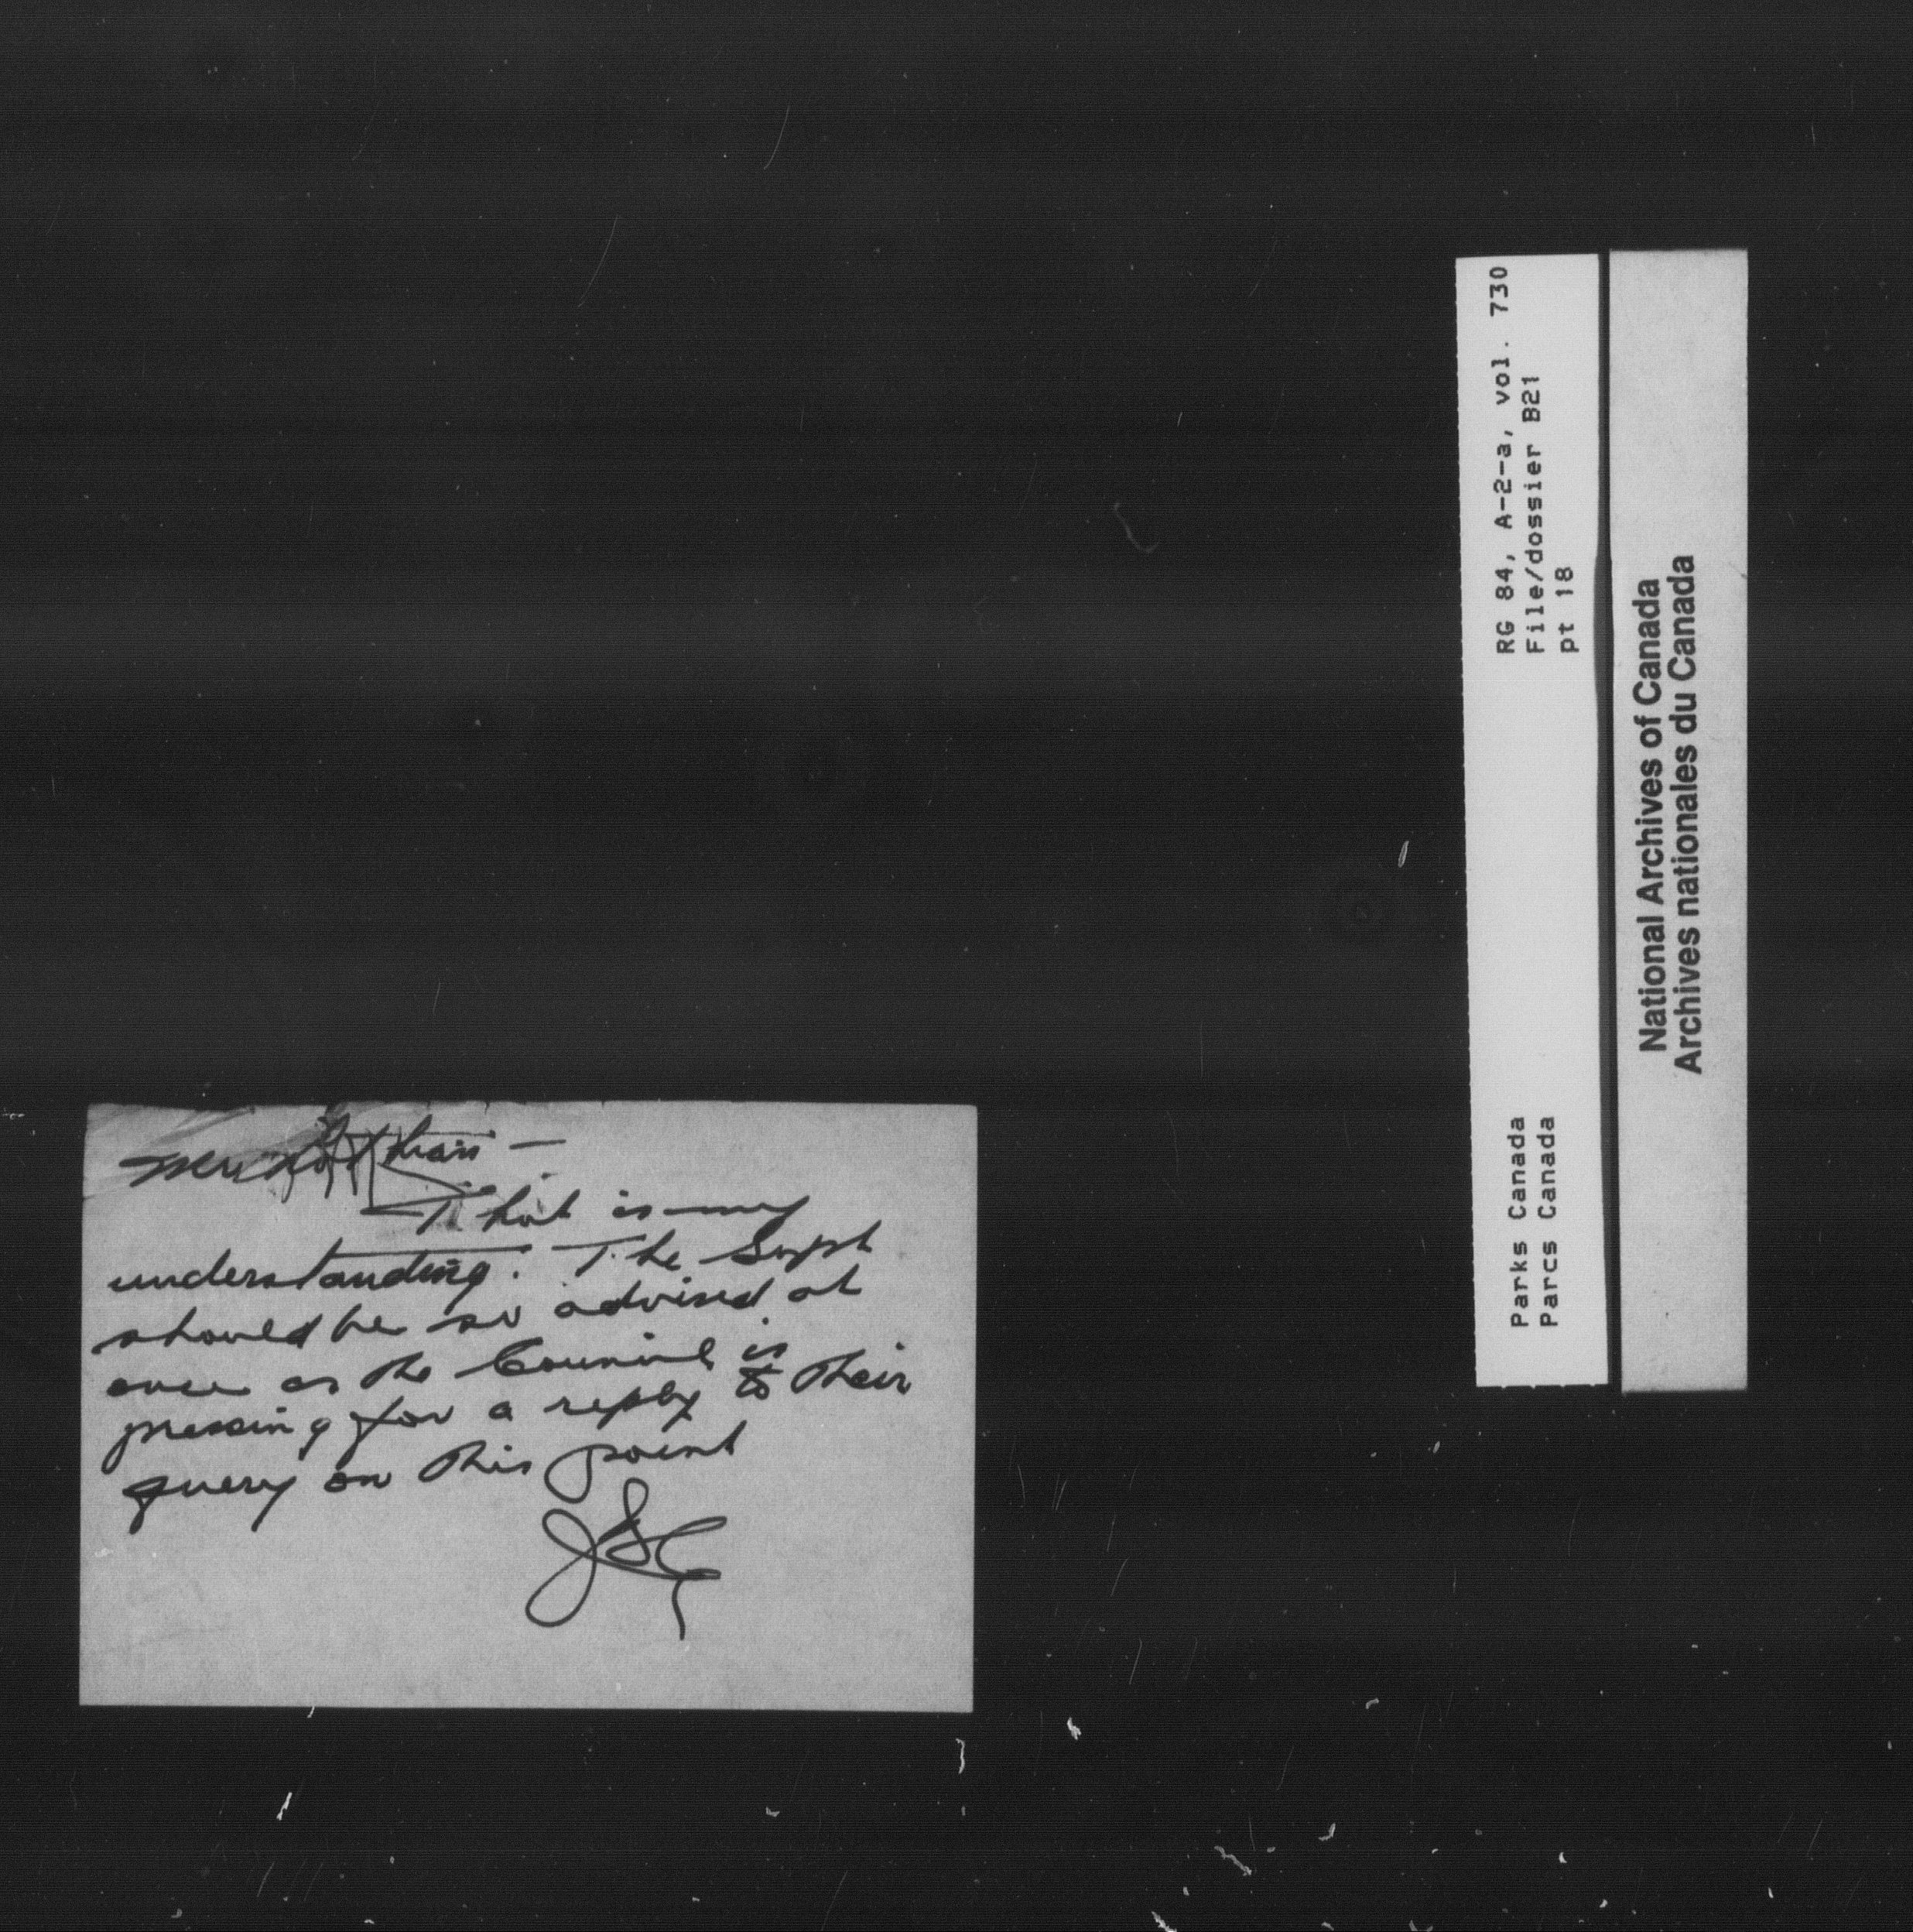 That is my
understanding. The Supt
should be so advised at
once as the Council is
pressing for a reply to their
query on this point
JSC
RG 84, A-2-a, vol. 730
File/dossier B21
pt 18
Parks Canada
Parcs Canada
National Archives of Canada
Archives nationales du Canada